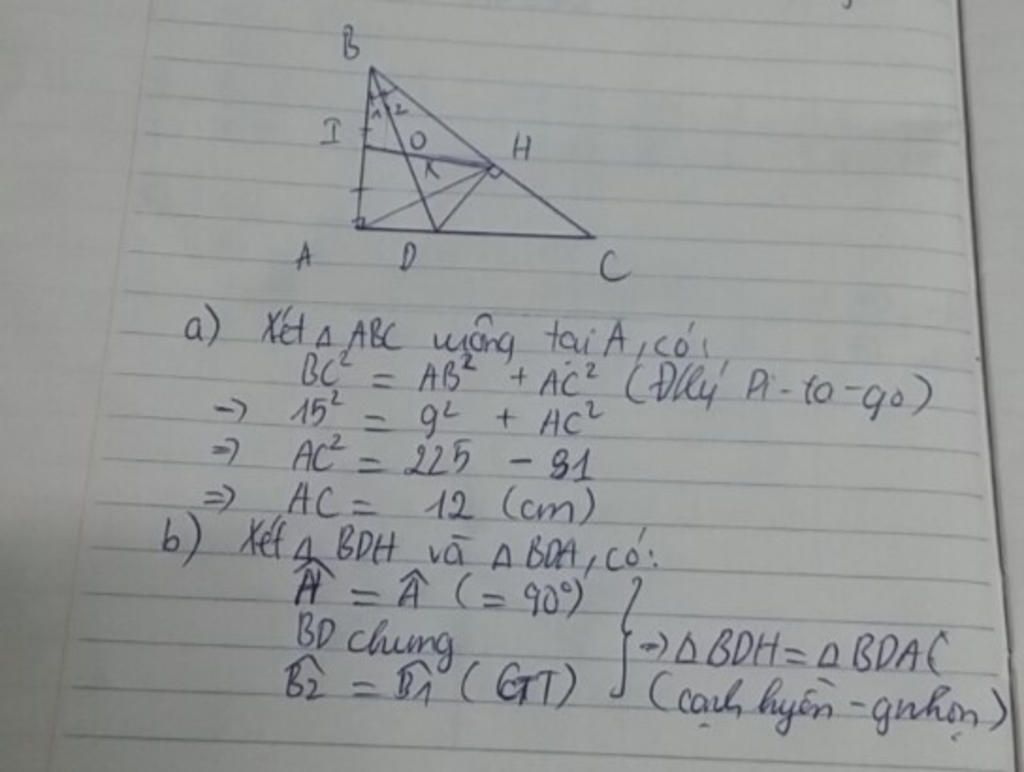 B
1 2
I
O
H
K
A
D
C
a) Xét △ ABC vuông tại A, có:
BC² = AB² + AC² (Đlý Pi-ta-go)
→ 15² = 9² + AC²
⇒ AC² = 225 - 81
⇒ AC = 12 (cm)
b) Xét △ BDH và △ BDA, có:
Ĥ = Â (= 90°)
BD chung
B̂2 = B̂1 (GT)
⇒ △ BDH = △ BDA (
(cạnh huyền - gnhọn)